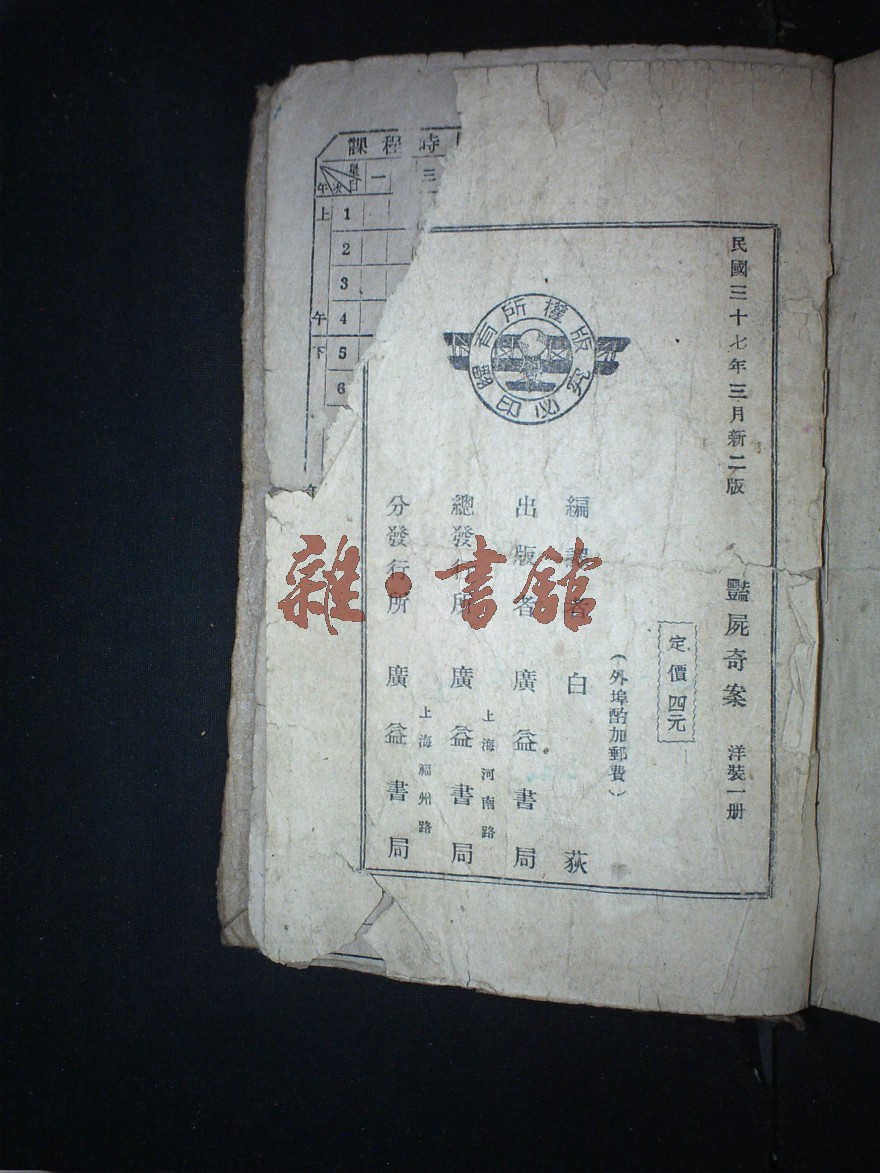 民國三十七年三月新二版
豔屍奇案 洋裝一册
定價四元
(外埠酌加郵費)
編譯者 白荻
出版者 廣益書局
總發行所 上海河南路 廣益書局
分發行所 上海福州路 廣益書局
版權所有
翻印必究
雜·書館
課程時
星日
午 次
一
三
上午
下
1
2
3
4
5
6